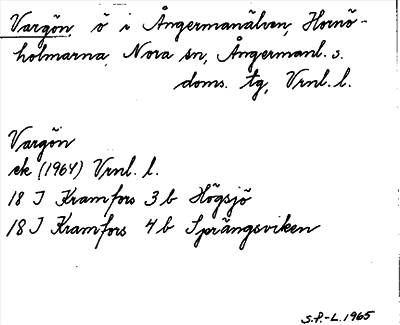 Vargön, ö i Ångermanälven, Hornö-
holmarna, Nora sn, Ångermanl. s.
doms. tg, Vrnl. l.
Vargön
ek (1964) Vrnl. l.
18 I Kramfors 3 b Högsjö
18 I Kramfors 4 b Sprängsviken
S.P.-L. 1965